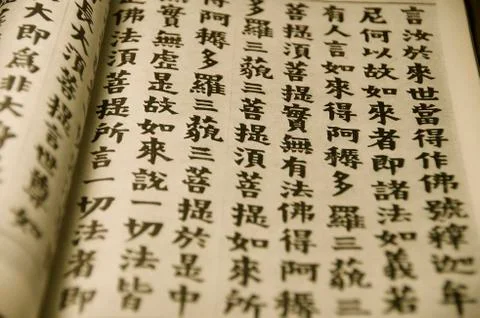 言汝於來世當得作佛號釋迦牟
尼何以故如來者即諸法如義若
有人言如來得阿耨多羅三藐三
菩提須菩提實無有法佛得阿耨
多羅三藐三菩提須菩提如來所
得阿耨多羅三藐三菩提於是中
實無虛是故如來說一切法皆
佛法須菩提所言一切法者即
長大須菩提言世尊如
大即爲非大身